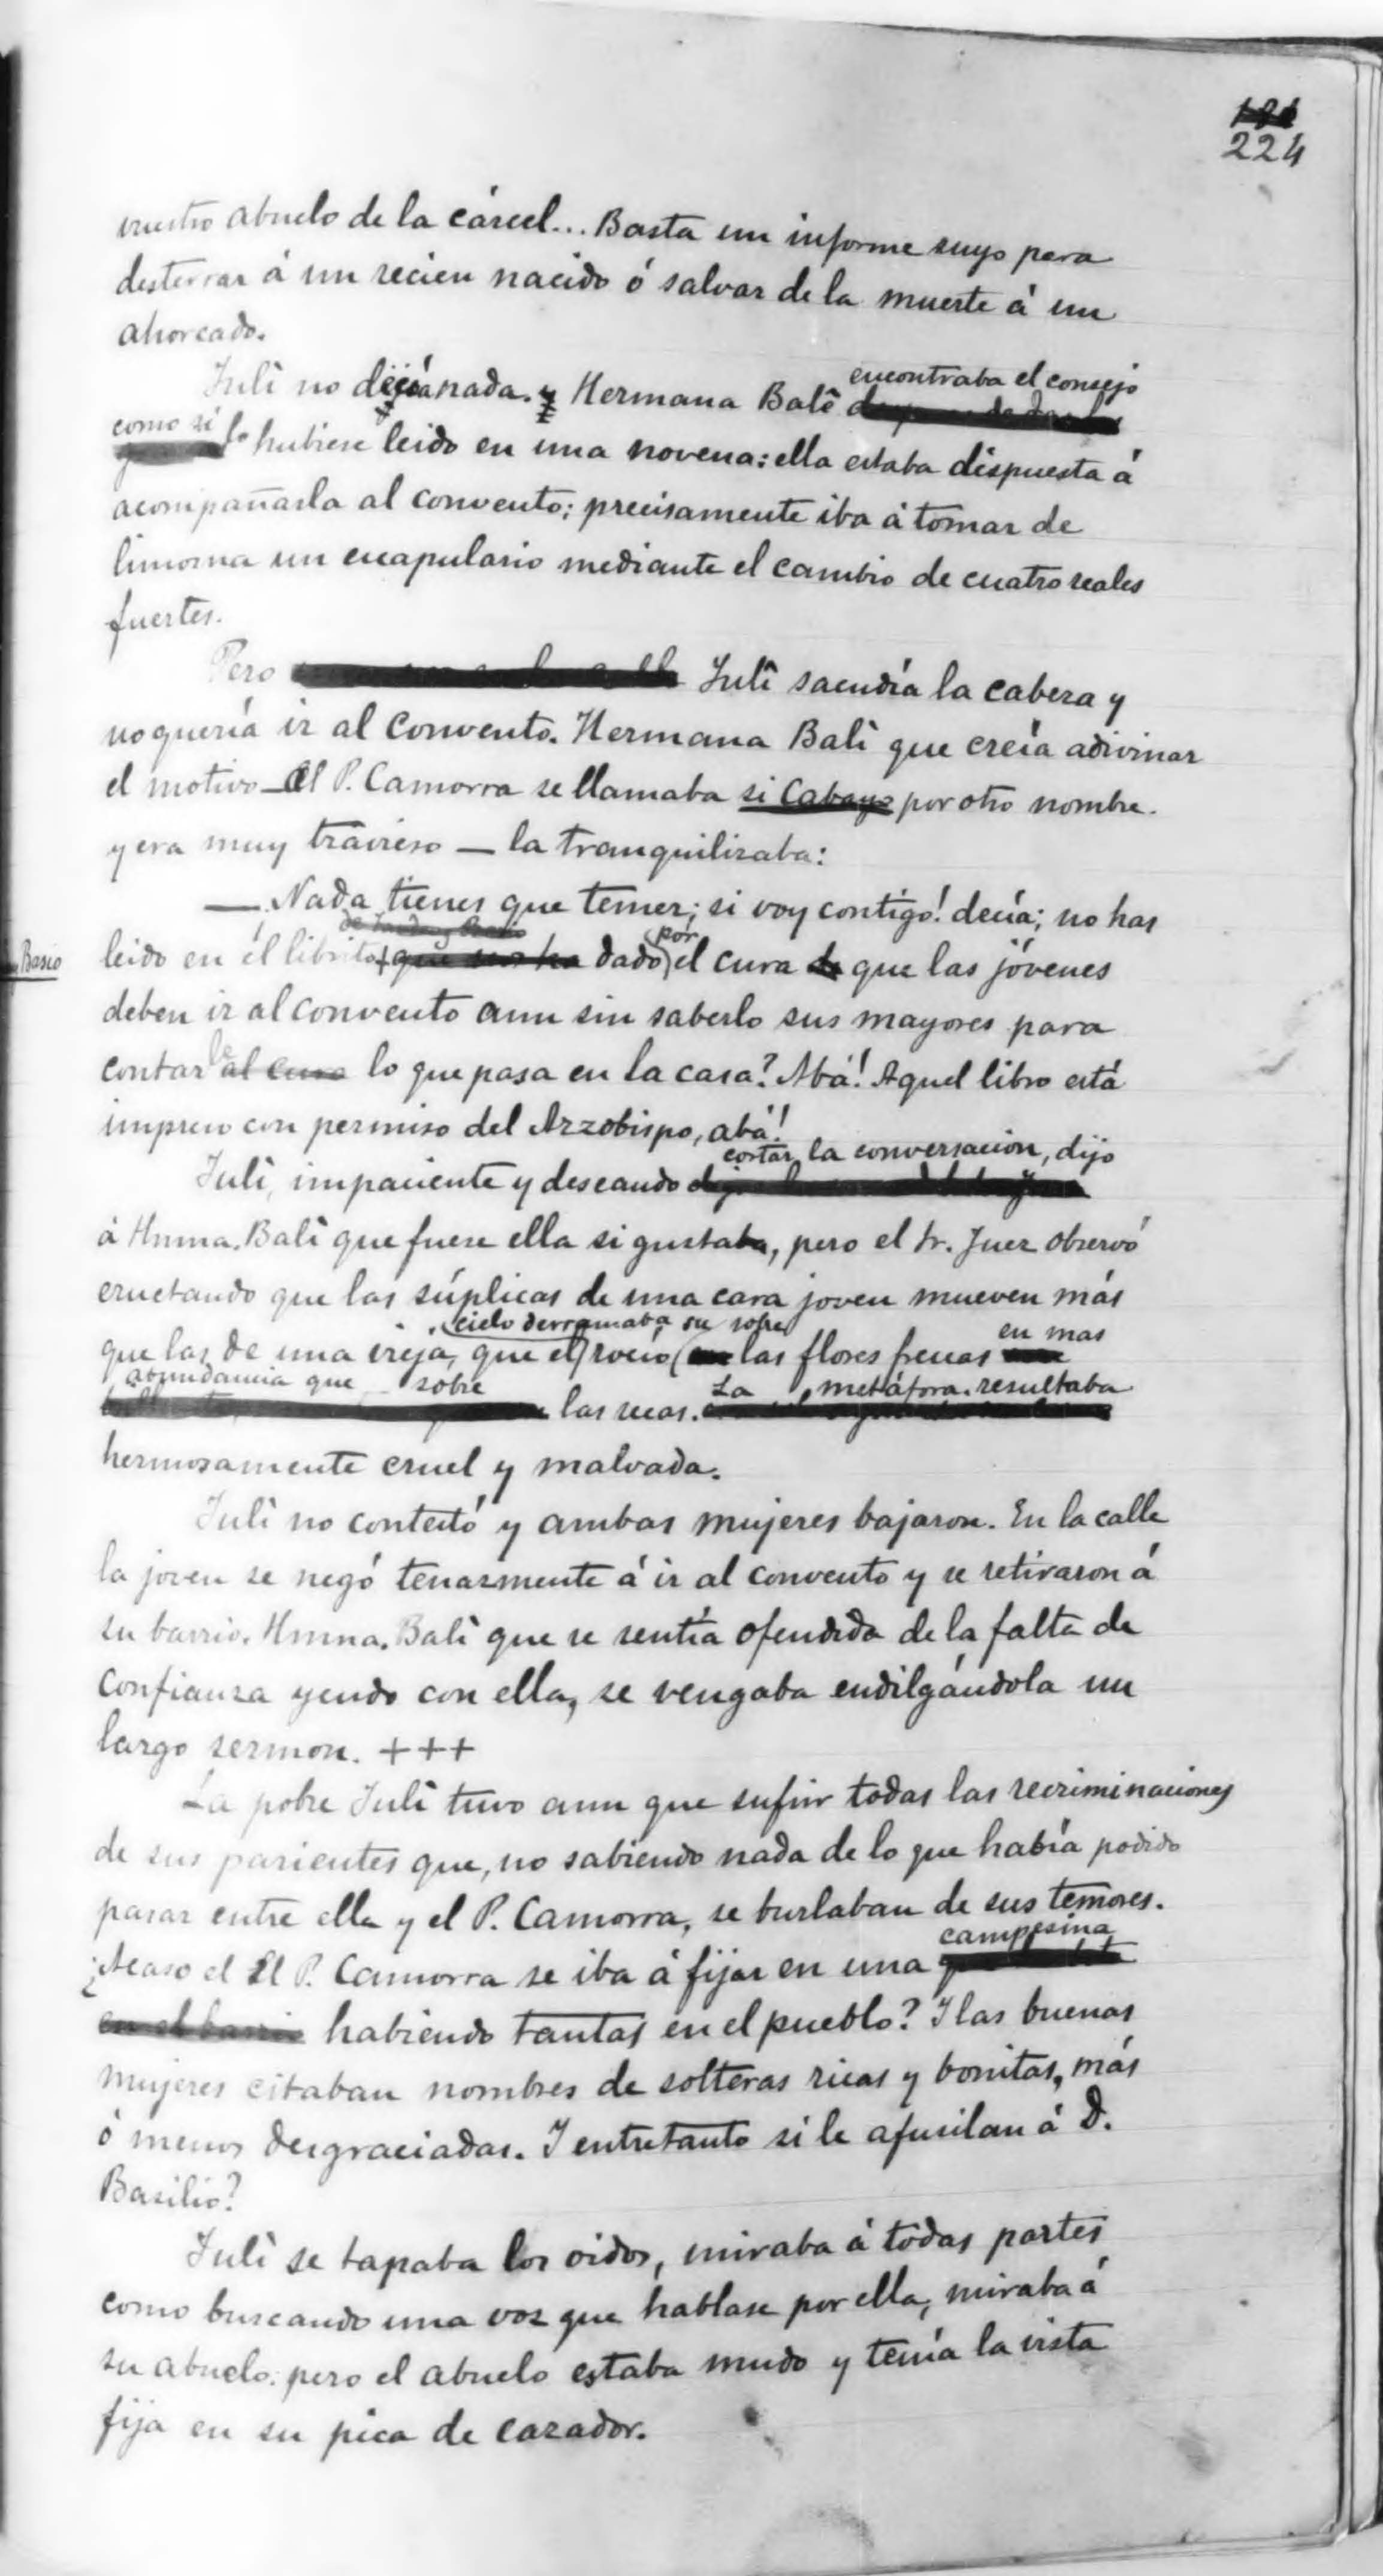 224
vuestro abuelo de la cárcel... Basta un informe suyo para
desterrar á un recien nacido ó salvar de la muerte á un
ahorcado.
Julî no decía nada. y Hermana Balê encontraba el consejo
como si lo hubiese leido en una novena: ella estaba dispuesta á
acompañarla al convento; precisamente iba á tomar de
limosna un escapulario mediante el cambio de cuatro reales
fuertes.
Pero Julî sacudía la cabeza y
no quería ir al convento. Hermana Balî que creía adivinar
el motivo — el P. Camorra se llamaba si Cabayo por otro nombre.
y era muy travieso — la tranquilizaba:
— Nada tienes que temer; si voy contigo! decía; no has
leido en el librito
Basio
dado por el cura que las jóvenes
deben ir al convento aun sin saberlo sus mayores para
contarle al cura lo que pasa en la casa? Abá! Aquel libro está
impreso con permiso del Arzobispo, abá!
Julî, impaciente y deseando cortar la conversacion, dijo
á Hmna. Balî que fuese ella si gustaba, pero el Sr. Juez observó
eructando que las súplicas de una cara joven mueven más
que las de una vieja, que el cielo derramaba su rocío sobre las flores frescas en mas
abundancia que sobre las secas. La metáfora resultaba
hermosamente cruel y malvada.
Julî no contestó y ambas mujeres bajaron. En la calle
la joven se negó tenazmente á ir al convento y se retiraron á
su barrio. Hmna. Balî que se sentía ofendida de la falta de
confianza yendo con ella, se vengaba endilgándola un
largo sermon. +++
La pobre Julî tuvo aun que sufrir todas las recriminaciones
de sus parientes que, no sabiendo nada de lo que había podido
pasar entre ella y el P. Camorra, se burlaban de sus temores.
¿Acaso el El P. Camorra se iba á fijar en una campesina
en el barrio habiendo tantas en el pueblo? I las buenas
mujeres citaban nombres de solteras ricas y bonitas, más
ó menos desgraciadas. I entretanto si le afusilan á D.
Basilio?
Julî se tapaba los oidos, miraba á todas partes
como buscando una voz que hablase por ella, miraba á
su abuelo; pero el abuelo estaba mudo y tenía la vista
fija en su pica de cazador.